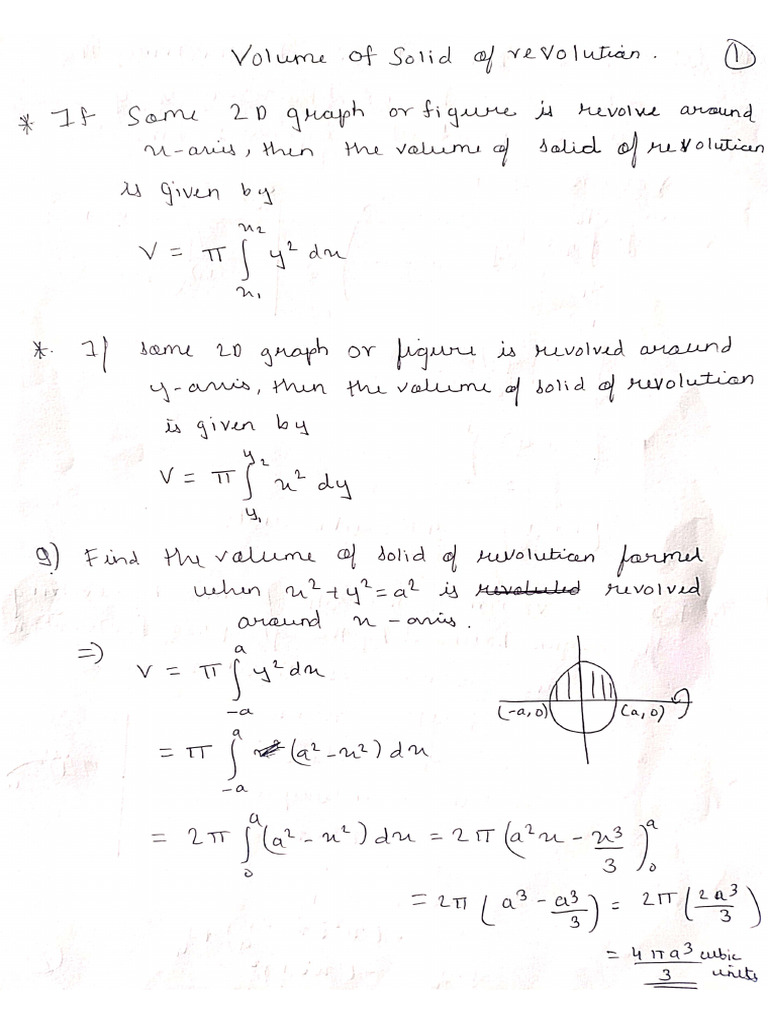 Volume of Solid of revolution. ①
* If Some 2D graph or figure is revolve around
x-axis, then the volume of solid of revolution
is given by
V = π ∫_{x₁}^{x₂} y² dx
*. If some 2D graph or figure is revolved around
y-axis, then the volume of solid of revolution
is given by
V = π ∫_{y₁}^{y₂} x² dy
g) Find the volume of solid of revolution formed
when x² + y² = a² is revoluted revolved
around x-axis.
=) V = π ∫_{-a}^{a} y² dx
(-a, 0) (a, 0)
= π ∫_{-a}^{a} (a² - x²) dx
= 2π ∫_{0}^{a} (a² - x²) dx = 2π (a²x - x³/3)_{0}^{a}
= 2π (a³ - a³/3) = 2π (2a³/3)
= 4πa³/3 cubic units